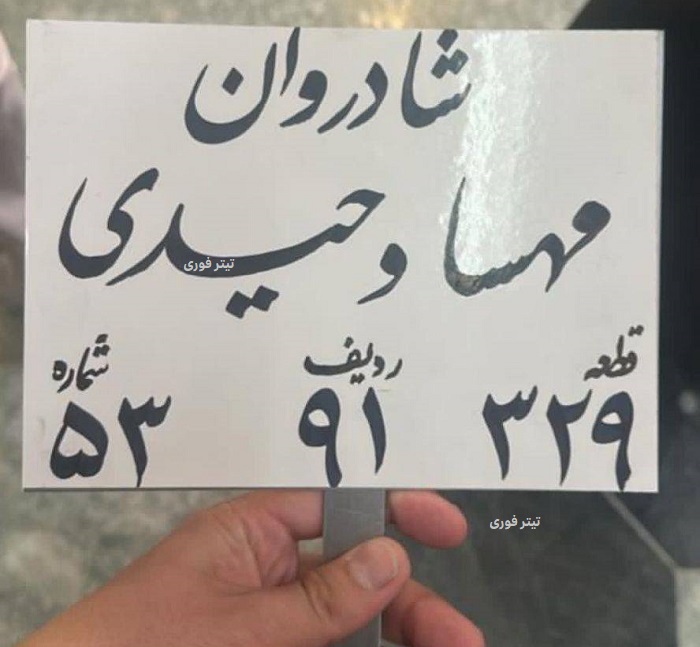 شادروان
مهسا وحیدی
تیتر فوری
قطعه ردیف شماره
۳۲۹ ۹۱ ۵۳
تیتر فوری